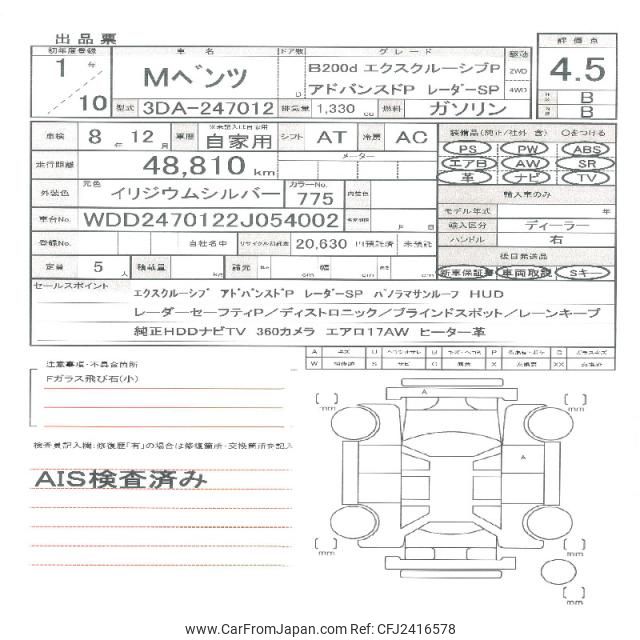 出品票
初年度登録 車名 ドア数 グレード 駆動 評価点
1年 / 10
Mベンツ
D
B200d エクスクルーシブP
アドバンスドP レーダーSP
2WD
4WD
4.5
B
B
型式 3DA-247012 排気量 1,330 cc 燃料 ガソリン
車検 8年 12月 車歴 自家用 シフト AT 冷房 AC
装備品(純正/社外 含) ○をつける
PS PW ABS
エアB AW SR
革 ナビ TV
走行距離 48,810 km メーター
輸入車のみ
外装色 元色 イリジウムシルバー カラーNo. 775 内装色
モデル年式 年
車台No. WDD2470122J054002
輸入区分 ディーラー
ハンドル 右
登録No. 自社名中 リサイクル預託金 20,630 円 預託済 未預託
後日発送品
定員 5人 積載量 kg 諸元 cm cm cm
新車保証書 車両取説 Sキー
セールスポイント
エクスクルーシブ アドバンスドP レーダーSP パノラマサンルーフ HUD
レーダーセーフティP/ディストロニック/ブラインドスポット/レーンキープ
純正HDDナビTV 360カメラ エアロ17AW ヒーター革
注意事項・不具合箇所
Fガラス飛び石(小)
検査員記入欄:修復歴「有」の場合は修復箇所・交換箇所を記入
AIS検査済み
A
A
mm
mm
mm
mm
mm
www.CarFromJapan.com Ref: CFJ2416578